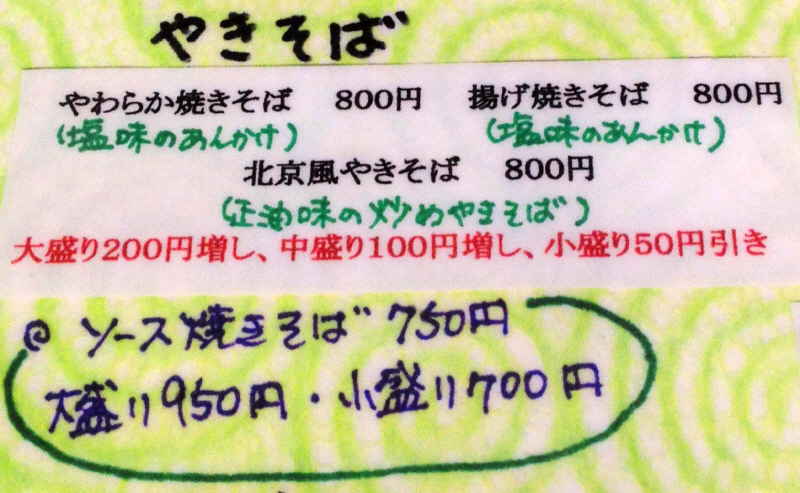 やきそば
やわらか焼きそば 800円 揚げ焼きそば 800円
(塩味のあんかけ) (塩味のあんかけ)
北京風やきそば 800円
(正油味の炒めやきそば)
大盛り200円増し、中盛り100円増し、小盛り50円引き
◎ ソース焼きそば 750円
大盛り950円・小盛り700円